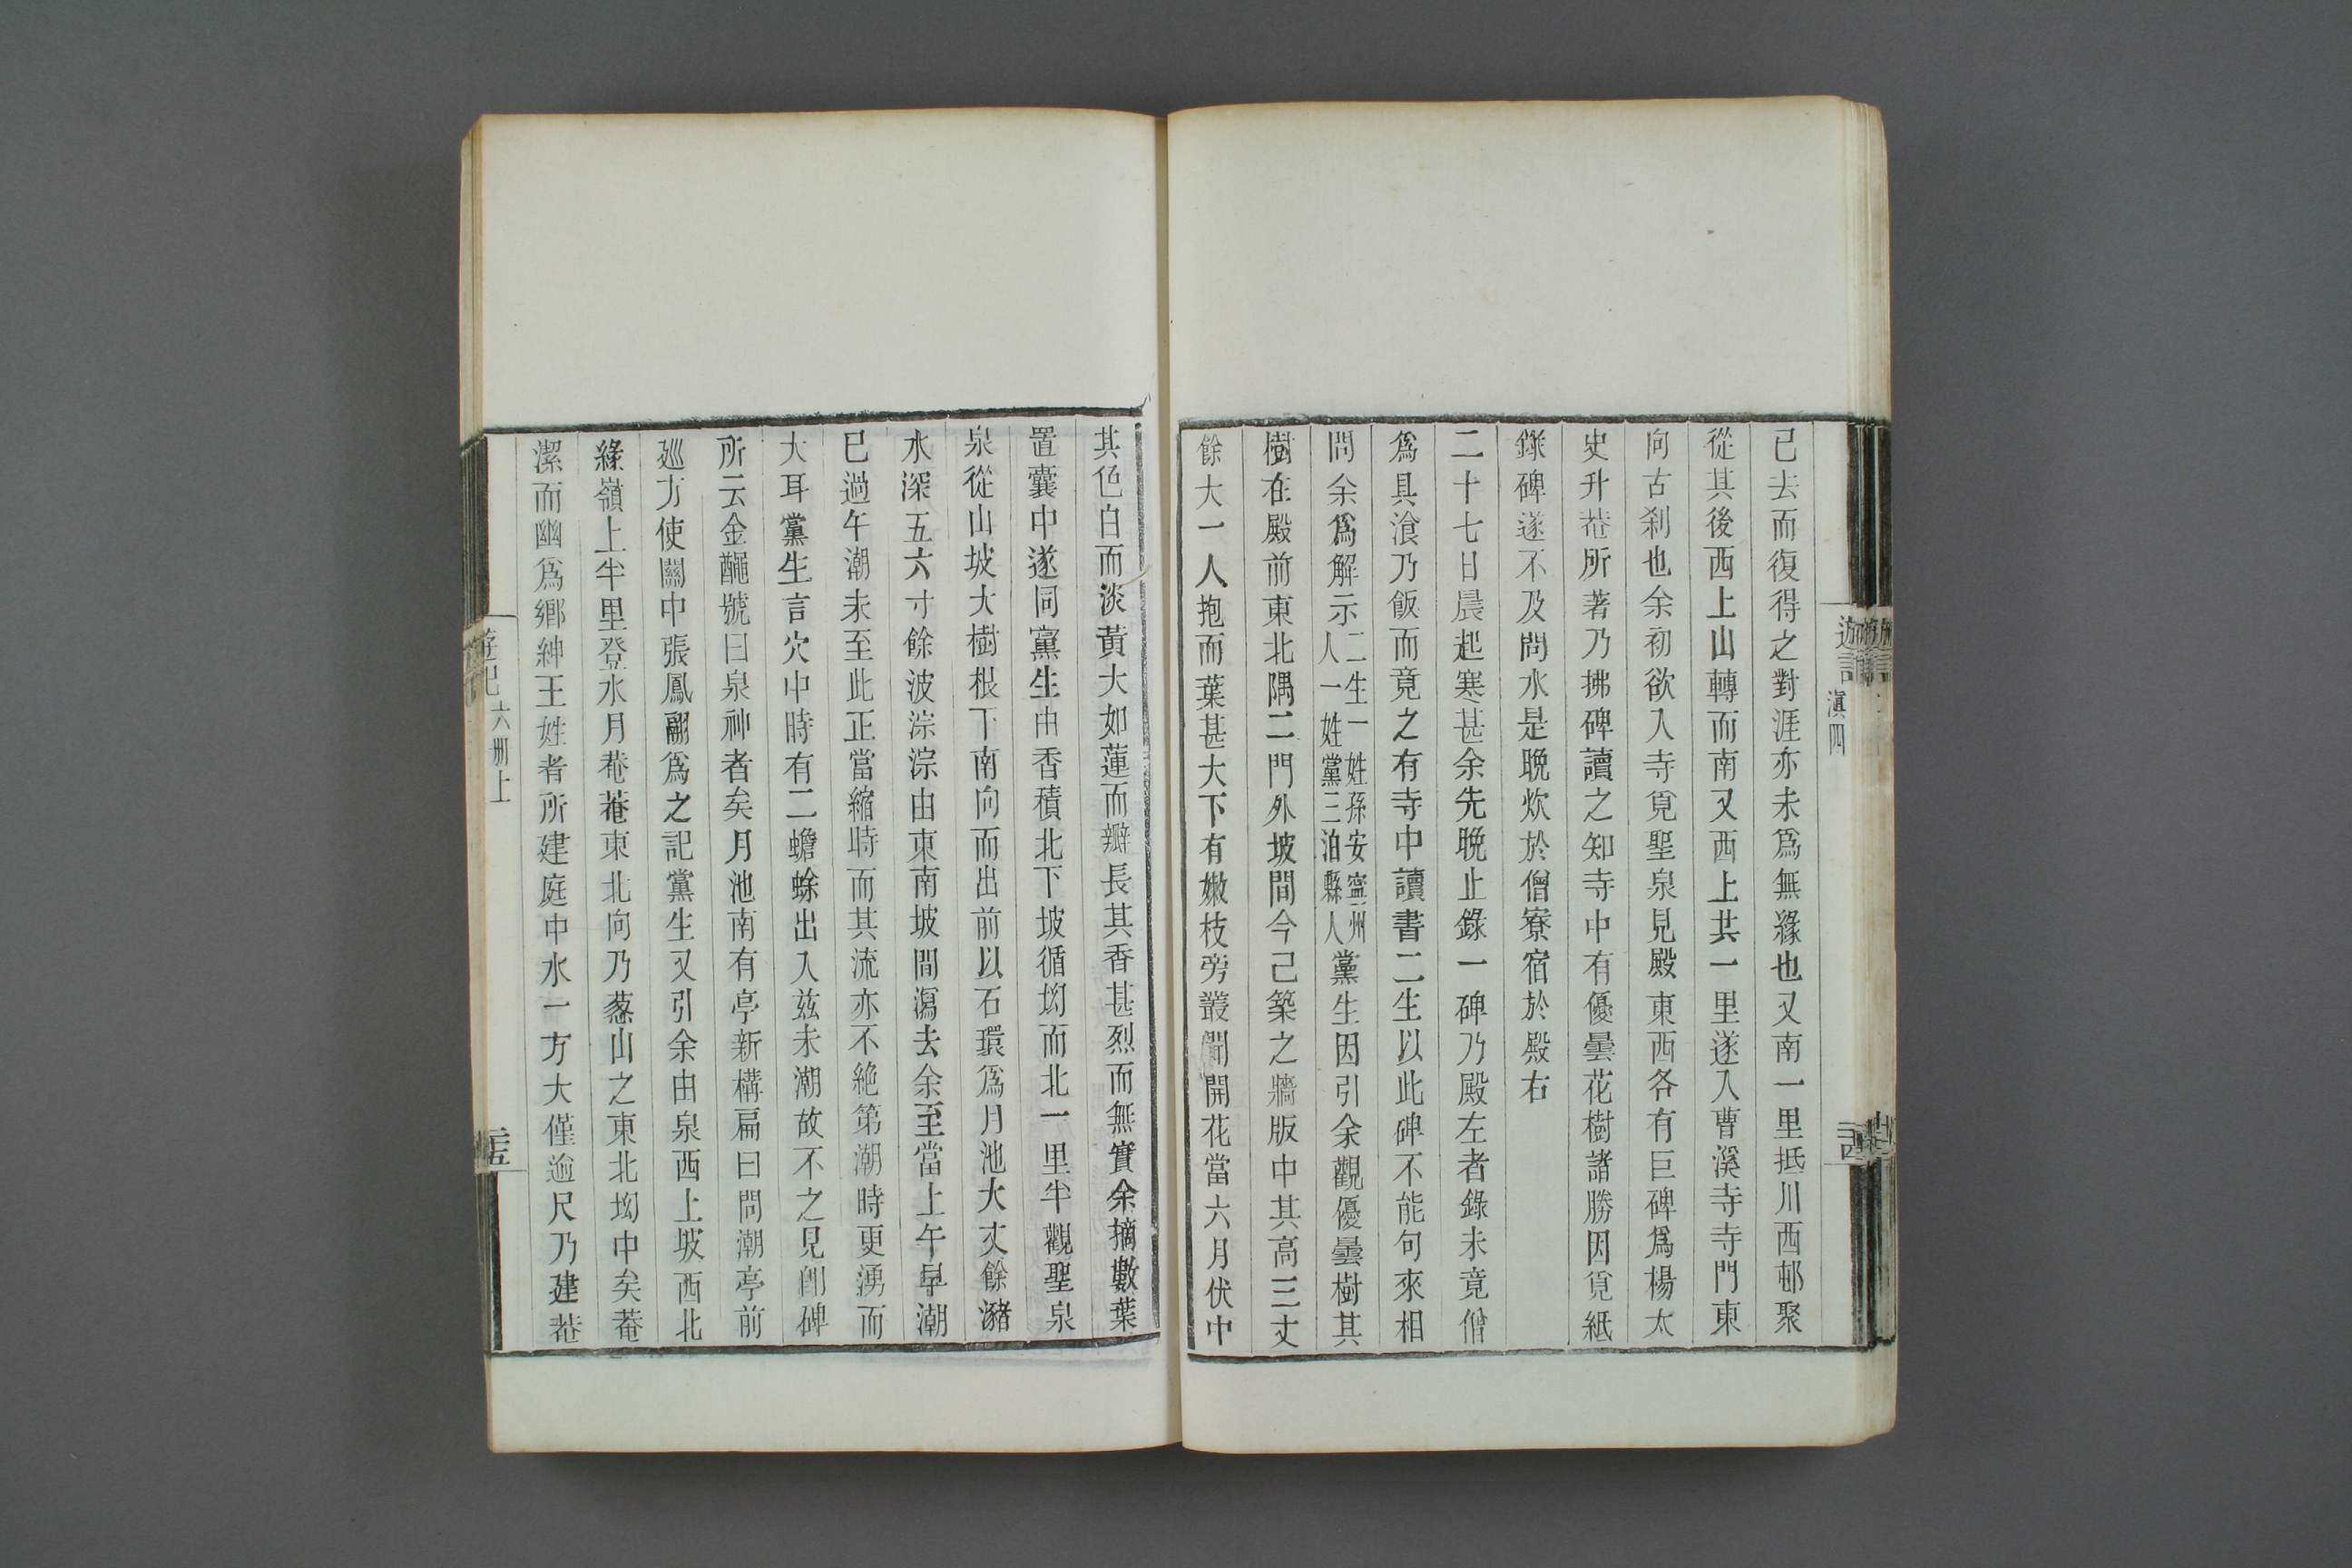 遊記 滇四
已去而復得之對涯亦未爲無緣也又南一里抵川西邨聚
從其後西上山轉而南又西上共一里遂入曹溪寺寺門東
向古刹也余初欲入寺覓聖泉見殿東西各有巨碑爲楊太
史升菴所著乃拂碑讀之知寺中有優曇花樹諸勝因覓紙
錄碑遂不及問水是晩炊於僧寮宿於殿右
二十七日晨起寒甚余先晩止錄一碑乃殿左者錄未竟僧
爲具湌乃飯而竟之有寺中讀書二生以此碑不能句來相
問余爲解示二生一姓孫安寧州人一姓黨三泊縣人黨生因引余觀優曇樹其
樹在殿前東北隅二門外坡間今已築之牆版中其高三丈
餘大一人抱而葉甚大下有嫩枝旁叢聞開花當六月伏中
其色白而淡黃大如蓮而瓣長其香甚烈而無實余摘數葉
置囊中遂同黨生由香積北下坡循坳而北一里半觀聖泉
泉從山坡大樹根下南向而出前以石環爲月池大丈餘瀦
水深五六寸餘波淙淙由東南坡間瀉去余至當上午早潮
已過午潮未至此正當縮時而其流亦不絶第潮時更湧而
大耳黨生言穴中時有二蟾蜍出入茲未潮故不之見卽碑
所云金䵷號曰泉神者矣月池南有亭新構扁曰問潮亭前
廵方使關中張鳳翮爲之記黨生又引余由泉西上坡西北
緣嶺上半里登水月菴菴東北向乃蔥山之東北坳中矣菴
潔而幽爲鄉紳王姓者所建庭中水一方大僅逾尺乃建菴
遊記 六册上